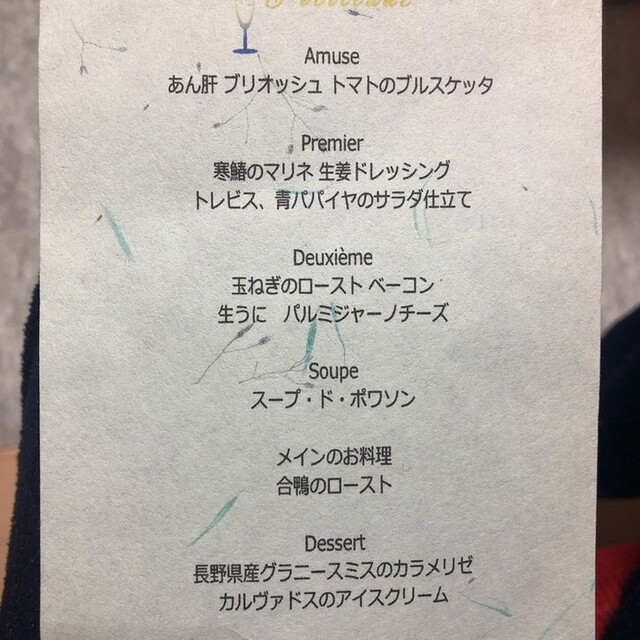 Amuse
あん肝 ブリオッシュ トマトのブルスケッタ
Premier
寒鰆のマリネ 生姜ドレッシング
トレビス、青パパイヤのサラダ仕立て
Deuxième
玉ねぎのロースト ベーコン
生うに　パルミジャーノチーズ
Soupe
スープ・ド・ポワソン
メインのお料理
合鴨のロースト
Dessert
長野県産グラニースミスのカラメリゼ
カルヴァドスのアイスクリーム